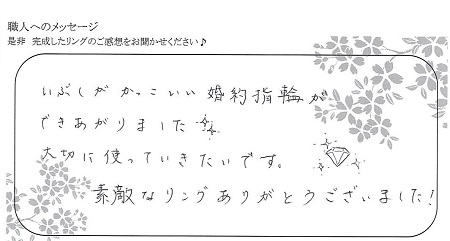 職人へのメッセージ
是非 完成したリングのご感想をお聞かせください♪
いぶしがかっこいい婚約指輪が
できあがりました
大切に使っていきたいです。
素敵なリングありがとうございました!